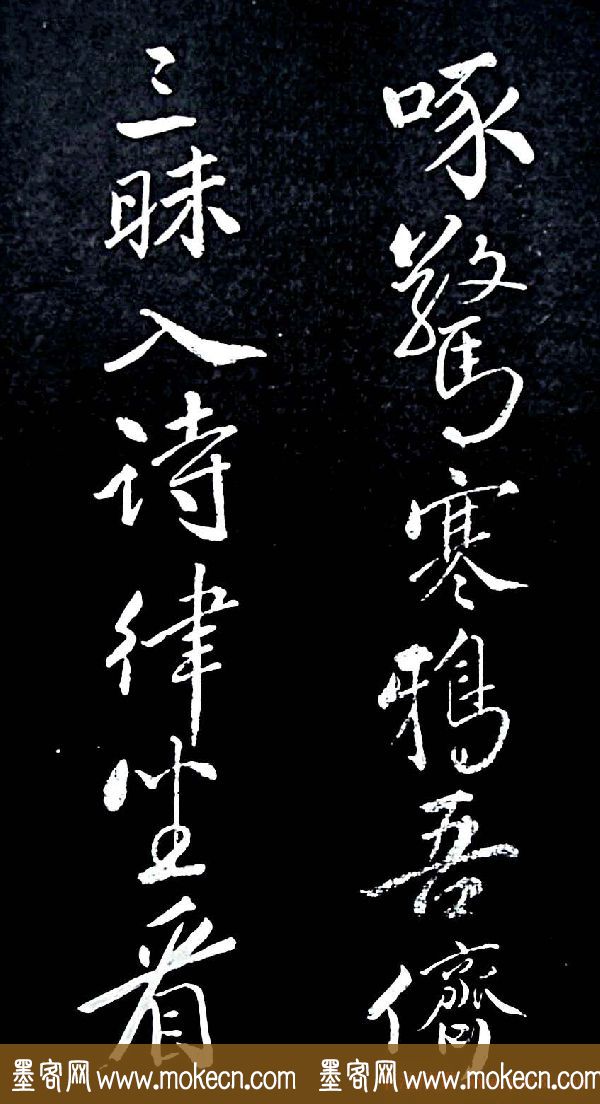 啄驚寒鴉吾儕
三昧入詩律坐看
墨客网 www.mokecn.com 墨客网 www.mokecn.com